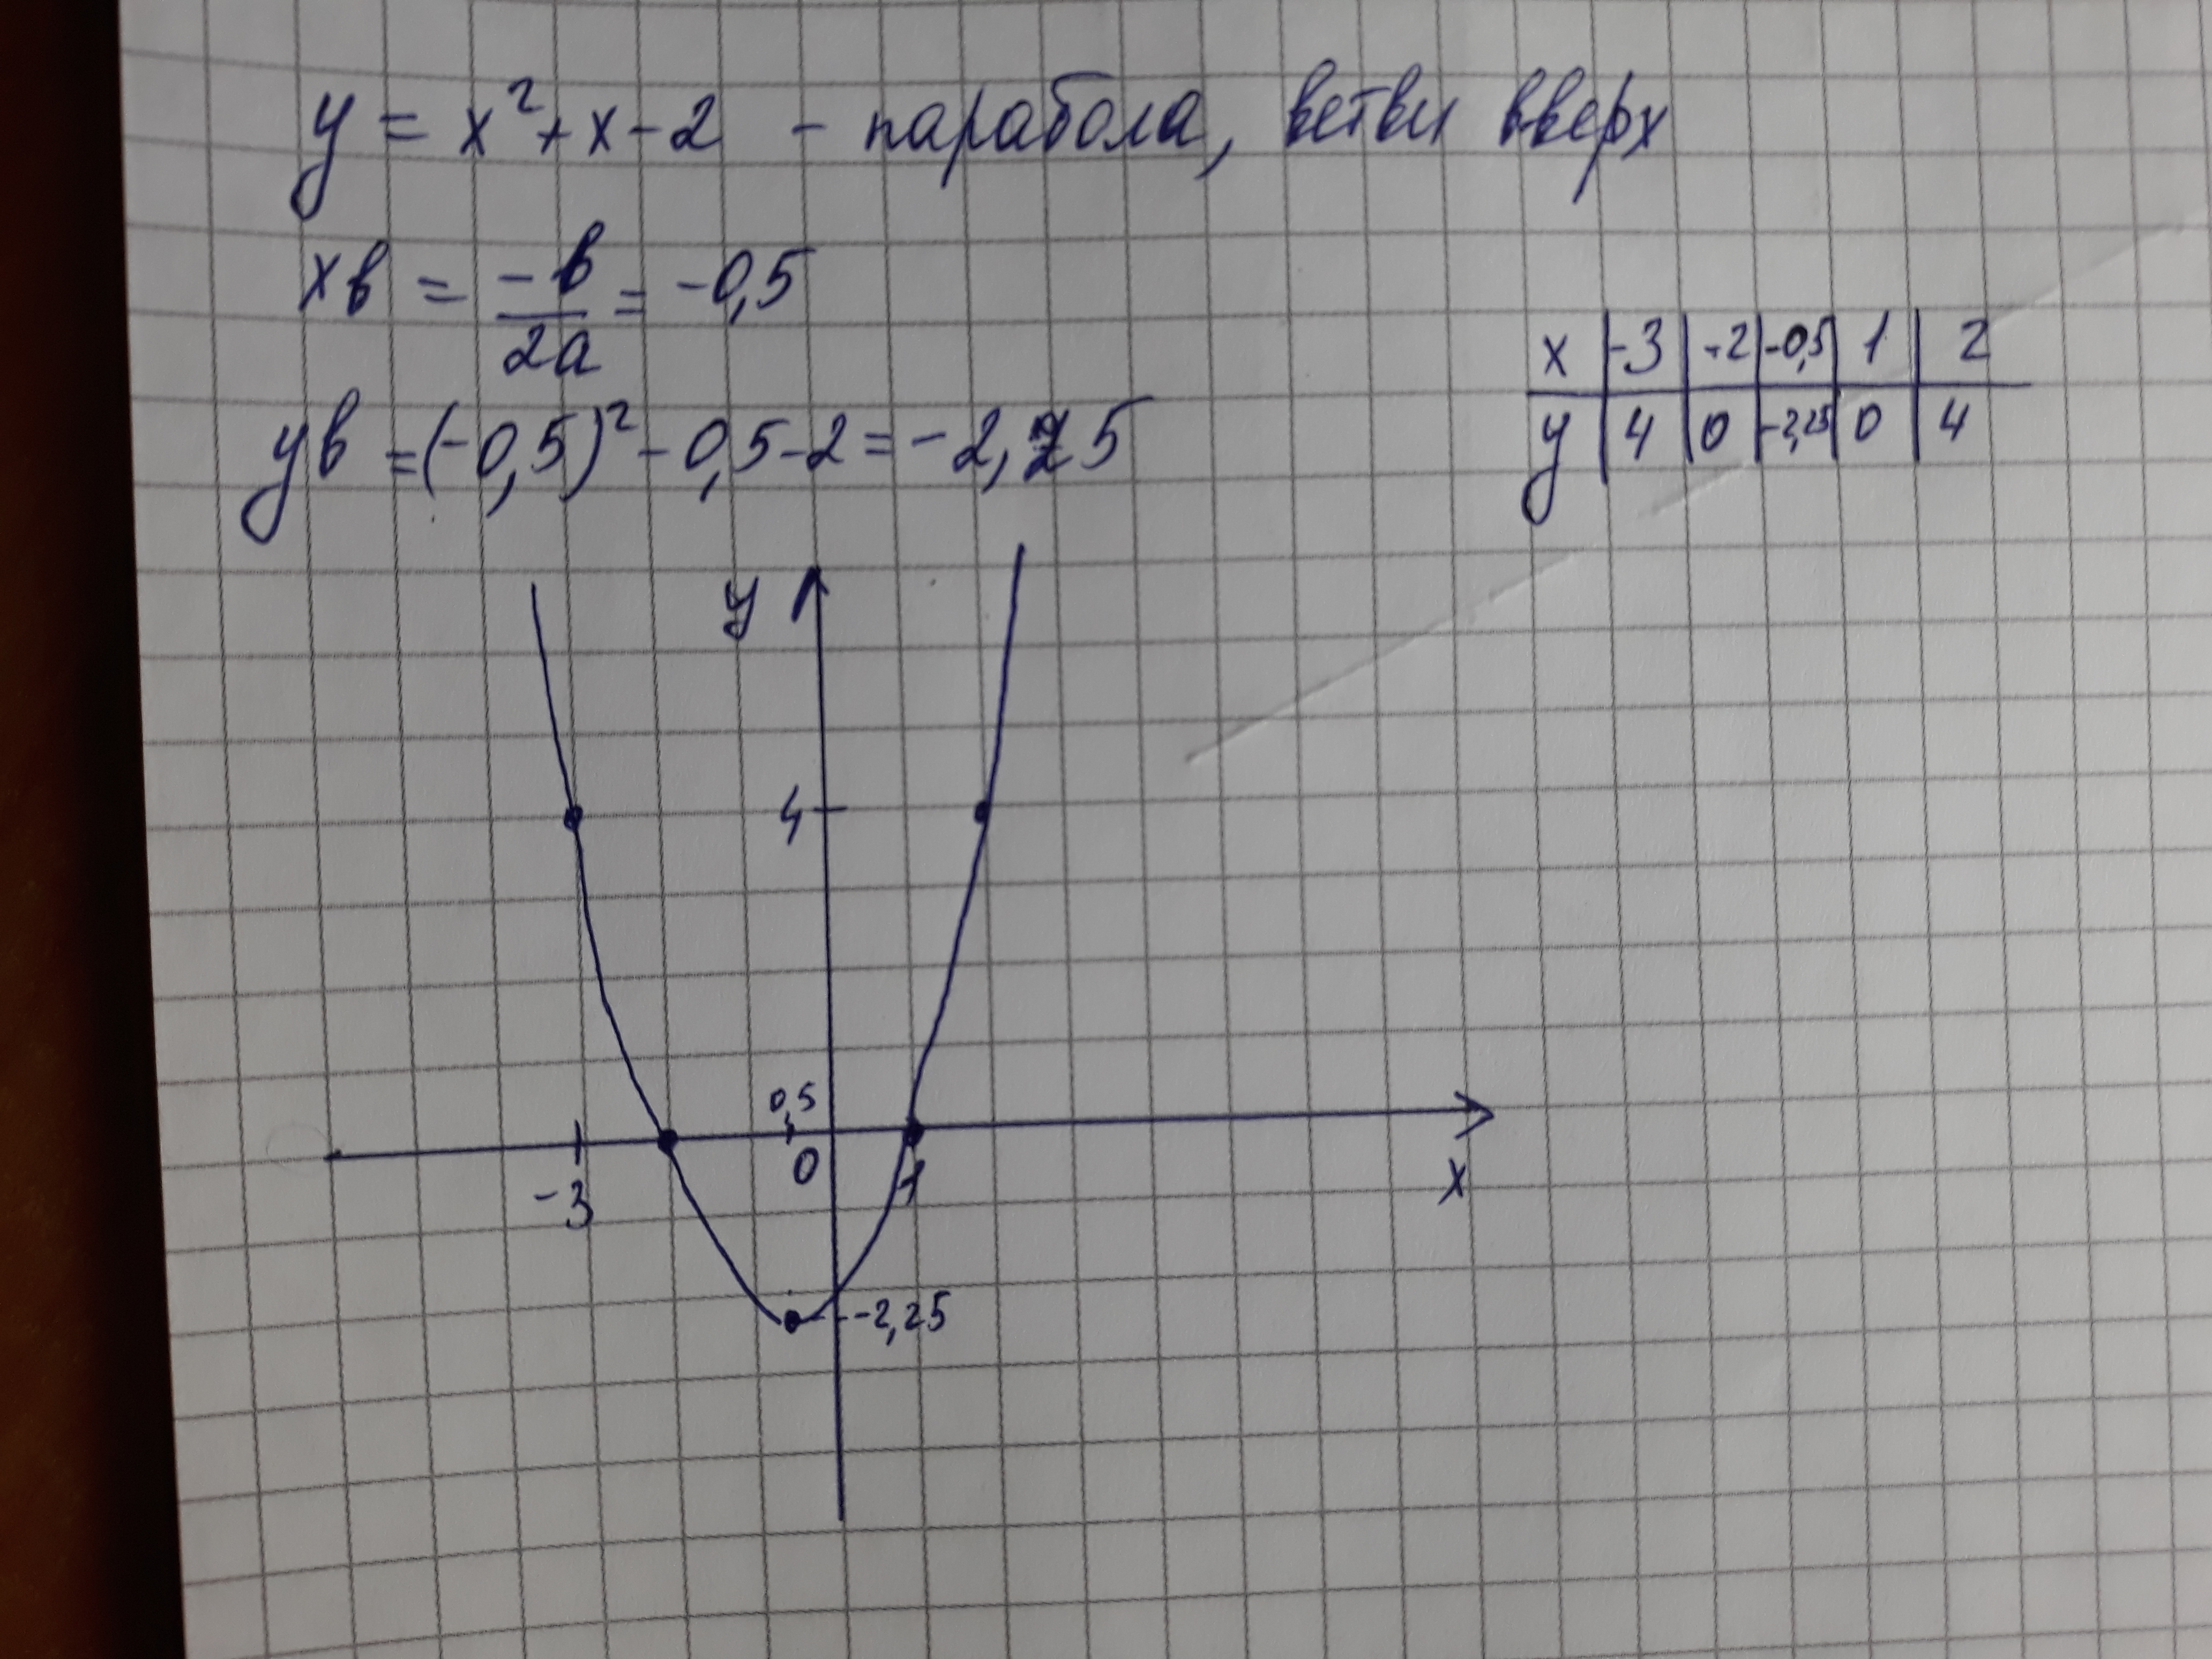 y = x² + x - 2 - парабола, ветви вверх
xв = -в/2a = -0,5
yв = (-0,5)² - 0,5 - 2 = -2,25
x | -3 | -2 | -0,5 | 1 | 2
y | 4 | 0 | -2,25 | 0 | 4
y
4
0,5
-3
0
1
x
-2,25